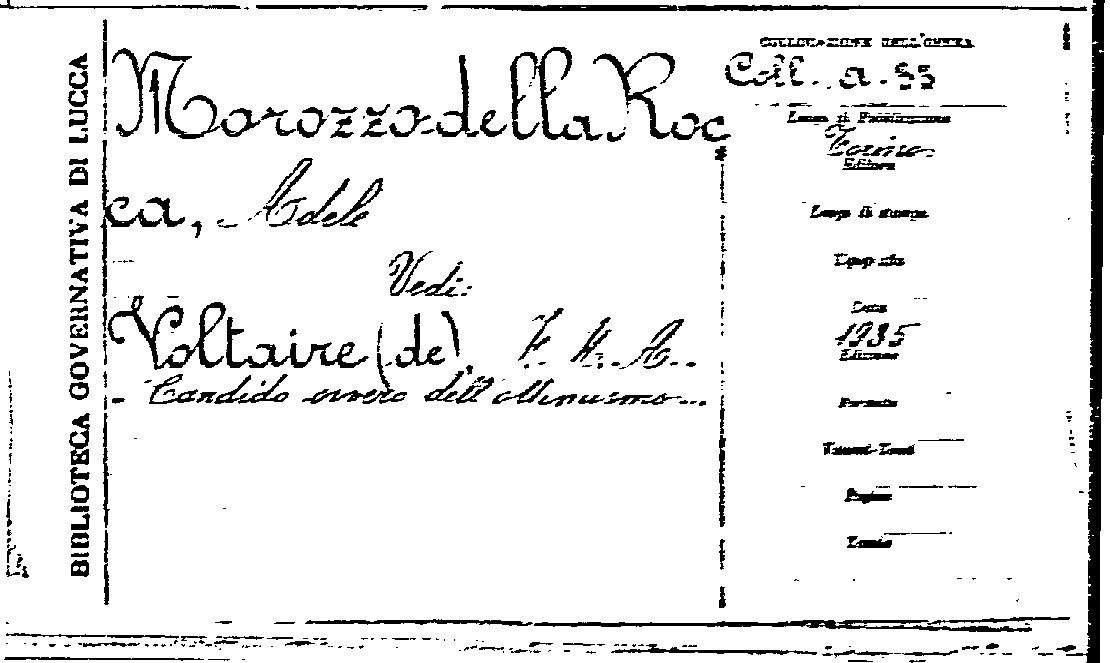 BIBLIOTECA GOVERNATIVA DI LUCCA
Morozzo della Roc
ca, Adele
Vedi:
Voltaire (de), F. M. A..
- Candido ovvero dell'ottimismo...
COLLOCAZIONE DELL'OPERA
Coll. a. 55
Luogo di Pubblicazione
Torino
Editore
Luogo di stampa
Tipografia
Data
1935
Edizione
Formato
Volumi-Tomi
Pagine
Fondo